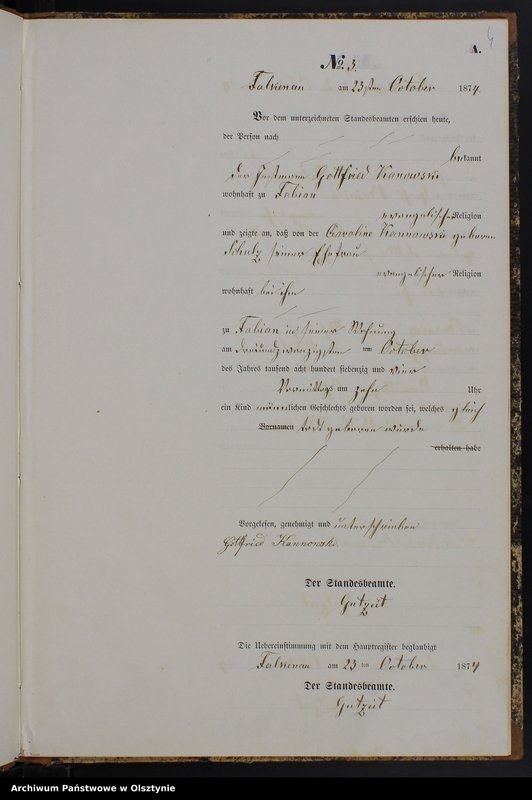 4
A.
No. 3.
am 23sten October 1874.
Vor dem unterzeichneten Standesbeamten erschien heute,
der Person nach
bekannt
der Instmann Gottfried Kanowski
wohnhaft zu Fabian
evangelischer Religion
und zeigte an, daß von der Caroline Kannowski geboren
Schulz seiner Ehefrau
evangelischer Religion
wohnhaft bei ihm
zu Fabian in seiner Wohnung
am dreiundzwanzigsten ten October
des Jahres tausend acht hundert siebenzig und vier
Vormittags um zehn Uhr
ein Kind männlichen Geschlechts geboren worden sei, welches gleich
Vornamen todt geboren wurde
erhalten habe
Vorgelesen, genehmigt und unterschrieben
Gottfried Kannowski.
Der Standesbeamte.
Gutzeit
Die Uebereinstimmung mit dem Hauptregister beglaubigt
am 23 ten October 1874
Der Standesbeamte.
Gutzeit
Archiwum Państwowe w Olsztynie